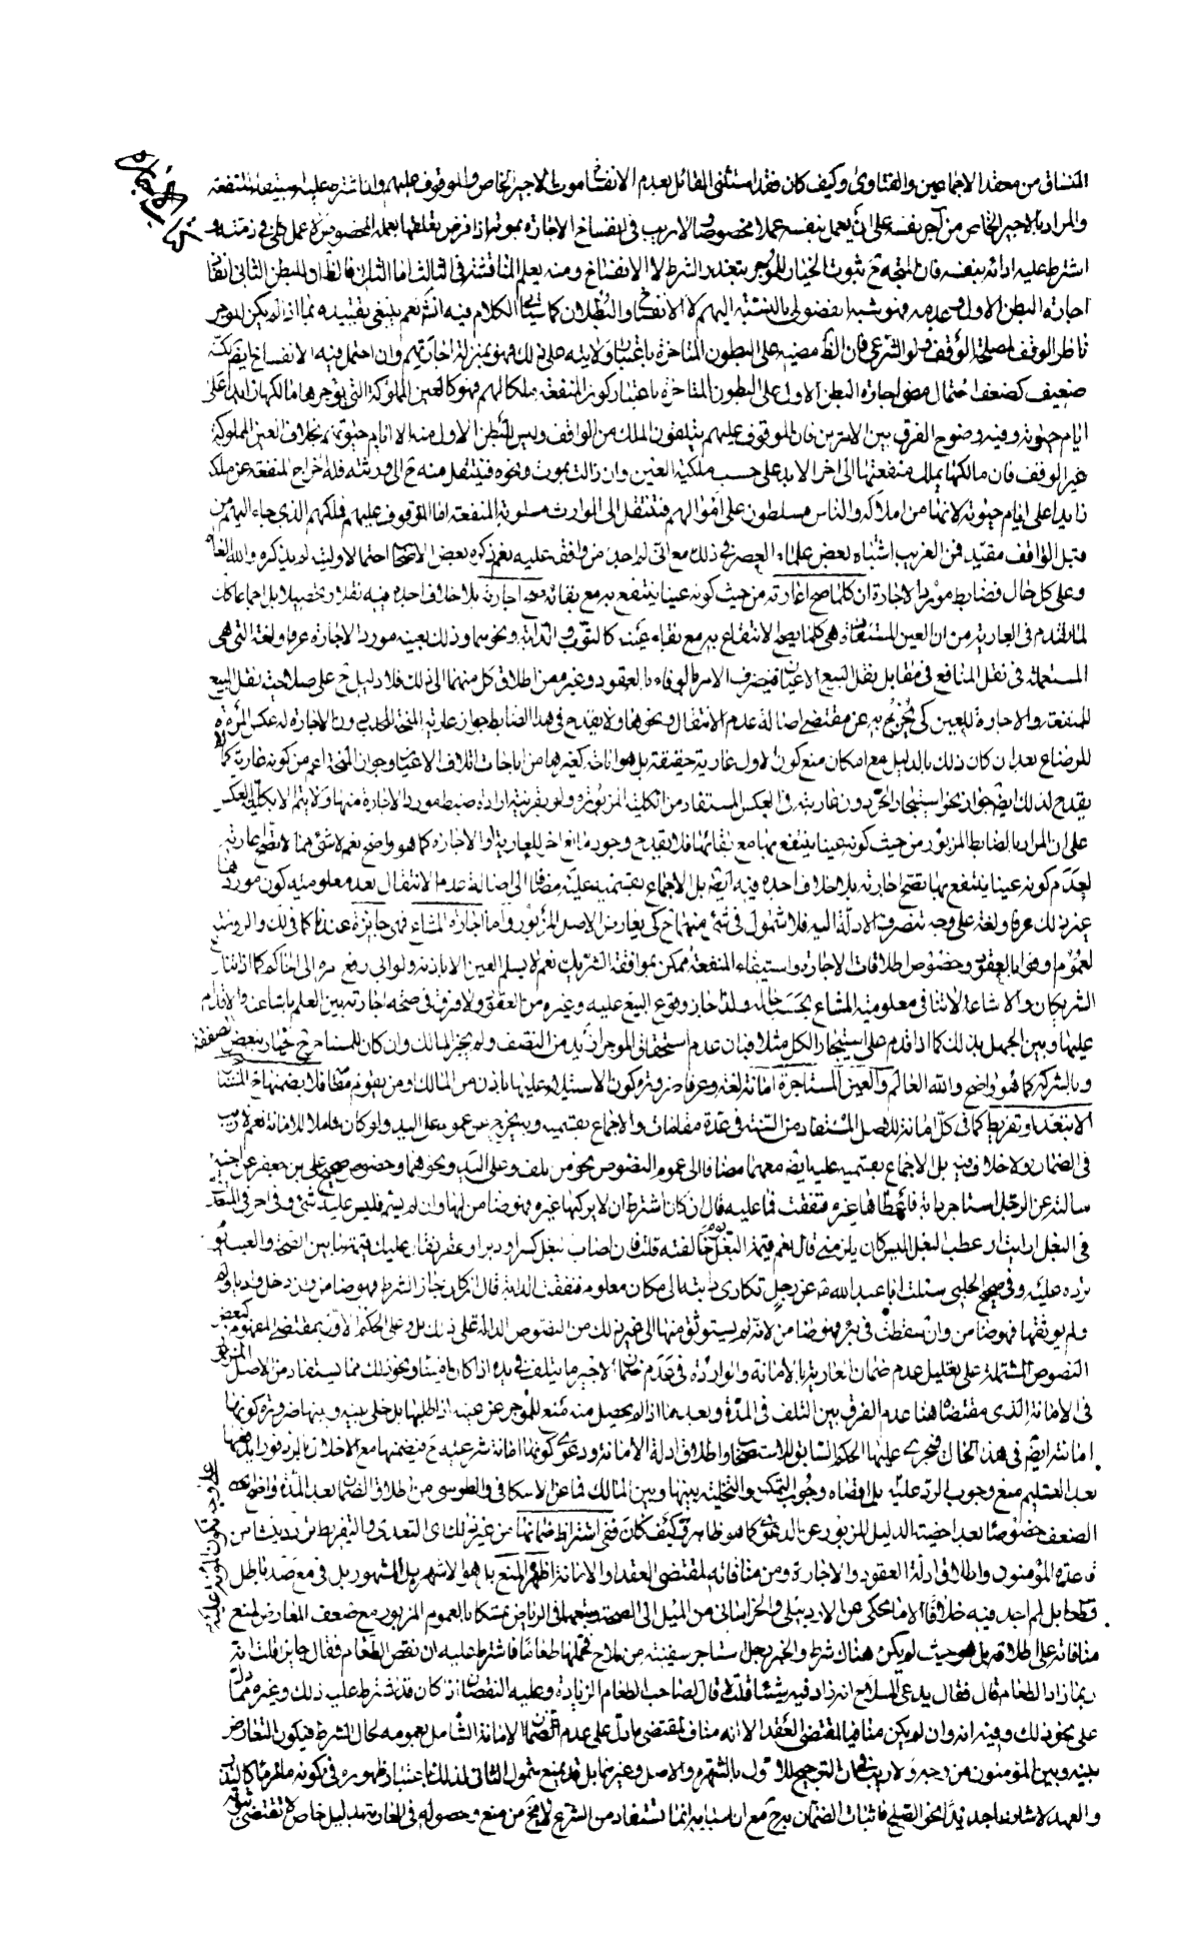 المنساق من محقد الاجماعين والفتاوى وكيف كان فقد استثنى القائل بعدم الانفساخ موت الاجير الخاص والموقوف عليهم وما شرط عليه استيفاء المنفعة
والمراد بالاجير الخاص من آجر نفسه على أن يعمل بنفسه عملا مخصوصا ولا ريب في انفساخ الاجارة بموته اذا فرض تعلقها بعمله المخصوص لا عمل كلي في ذمته و
اشترط عليه ادائه بنفسه فان المتجه ح ثبوت الخيار للموجر بتعذر الشرط لا الانفساخ ومنه يعلم المناقشة في الثالث اما الثاني فالظاهر ان للبطن الثاني
اجارة البطن الاول وعدمه فهو شبه الفضولي بالنسبة اليهم لا الانفساخ والبطلان كما سيأتي الكلام فيه انش نعم ينبغي تقييده بما اذا لم يكن الموجر
ناظر الوقف لمصلحة الوقف ولو الشرعي فان الظ مضيه على البطون المتاخرة باعتبار ولايته على ذلك فهو بمنزلة اجارتهم وان احتمل فيه الانفساخ ايض لكنه
ضعيف كضعف احتمال مضي اجارة البطن الاول على البطون المتاخرة باعتبار كون المنفعة ملكا لهم فهو كالعين المملوكة التي يوجرها مالكها زايدا على
ايام حيوته وفيه وضوح الفرق بين الامرين فان الموقوف عليهم يتلقون الملك من الواقف وليس للبطن الاول منه الا ايام حيوتهم بخلاف العين المملوكة
غير الوقف فان مالكها يملك منفعتها الى اخر الابد على حسب ملكية العين وان زالت بموت ونحوه فينتقل منه ح الى ورثته فله اخراج المنفعة عن ملكه
زايدا على ايام حيوته لانها من املاكه والناس مسلطون على اموالهم فتنتقل الى الوارث مسلوبة المنفعة اما الموقوف عليهم فملكهم الذي جاء اليهم من
قبل الواقف مقيد فمن الغريب اشتباه بعض علماء العصر في ذلك مع اني لم اجد من وافقه عليه نعم ذكره بعض الاصحاب احتمالا وليته لم يذكره والله العالم
وعلى كل حال فضابط مورد الاجارة ان كلما صح اعارته من حيث كونه عينا ينتفع به مع بقائه صح اجارته بلا خلاف اجده فيه نقلا وتحصيلا بل اجماعا كذلك
لما تقدم في العارية من ان العين المستعارة هي كلما يصح الانتفاع به مع بقاء عينه كالثوب والدابة ونحوهما وذلك بعينه مورد الاجارة عرفا ولغة التي هي
المستعملة في نقل المنافع في مقابل نقل البيع الاعيان فينصرف الامر بالوفاء بالعقود وغيره من اطلاق كل منهما الى ذلك فلا دليل ح على صلاحية نقل البيع
للمنفعة والاجارة للعين كي يخرج به عن مقتضى اصالة عدم الانتقال ونحوها ولا يقدح في هذا الضابط جواز عارية المنحة للحلب دون الاجارة له عكس المرءة
للرضاع بعد ان كان ذلك بالدليل مع امكان منع كون الاول عارية حقيقة بل هو اباحة كغيرها من اباحات اتلاف الاعيان وجواز المنحة اعم من كونه عارية كما لا
يقدح لذلك ايض جواز نحو استيجار الحر دون عاريته في العكس المستفاد من الكلية المزبورة ولو بقرينة ارادة ضبط مورد الاجارة منها ولا يتم الا بكلية العكس
على ان المراد بالضابط المزبور من حيث كونه عينا ينتفع بها مع بقائها فلا يقدح وجود مانع اخر للعارية او الاجارة كما هو واضح نعم لا شئ مما لا تصح عاريته
لعدم كونه عينا ينتفع بها تصح اجارته بلا خلاف اجده فيه ايض بل الاجماع بقسميه عليه مضافا الى اصالة عدم الانتقال بعد معلومية كون موردهما
غير ذلك عرفا ولغة على وجه تنصرف الادلة اليه فلا شمول في شئ منهما ح كي يعارض الاصل المزبور واما اجارة المشاع فهي جايزة عندنا كما في لك والروضة
لعموم اوفوا بالعقود وخصوص اطلاقات الاجارة واستيفاء المنفعة ممكن بموافقة الشريك نعم لا يسلم العين الا باذنه ولو ابى رفع امره الى الحاكم كما اذا تنازع
الشريكان والاشاعة لا تنافي معلومية المشاع بحسب حاله ولذا جاز وقوع البيع عليه وغيره من العقود ولا فرق في صحة اجارته بين العلم باشاعته والاقدام
عليها وبين الجهل بذلك كما اذا قدم على استيجار الكل مثلا فبان عدم استحقاق الموجر ازيد من النصف ولم يجز المالك وان كان للمستاجر ح خيار تبعض الصفقة
وبالشركة كما هو واضح والله العالم والعين المستاجرة امانة لغة وعرفا ضرورة كون الاستيلاء عليها باذن من المالك ومن يقوم مقامه فلا يضمنها المستاجر
الا بتعد او تفريط كما في كل امانة للاصل المستفاد من السنة في عدة مقامات والاجماع بقسميه وبه يخرج عن عموم على اليد ولو كان شاملا للامانة نعم لا ريب
في الضمان ولا خلاف فيه بل الاجماع بقسميه عليه ايض معهما مضافا الى عموم النصوص نحو من يلف وعلى اليد ونحوهما وخصوص صحيح علي بن جعفر عن اخيه
سالته عن الرجل استاجر دابة فاعطاها غيره فنفقت فما عليه فقال ان كان اشترط ان لا يركبها غيره فهو ضامن لها وان لم يسم فليس عليه شئ وفي اخر في المتعدي
في البغل ارايت لو عطب البغل اليس كان يلزمني قال نعم قيمة البغل يوم خالفته قلت فان اصاب البغل كسر او دبر او عقر فقال عليك قيمة ما بين الصحة والعيب يوم
ترده عليه وفي صحيح الحلبي سئلت ابا عبد الله ع عن رجل تكارى دابة الى مكان معلوم فنفقت الدابة قال ان كان جاز الشرط فهو ضامن وان دخل واديا
ولم يوثقها فهو ضامن وان سقطت في بئر فهو ضامن لانه لم يستوثق منها الى غير ذلك من النصوص الدالة على ذلك بل وعلى الحكم الاول بمقتضى المفهوم كبعض
النصوص المشتملة على تعليل عدم ضمان العارية بالامانة والواردة في عدم ضمان الاجير ما يتلف في يده اذا كان امينا ونحو ذلك مما يستفاد من الاصل المزبور
في الامانة الذي مقتضاه هنا عدم الفرق بين التلف في المدة وبعدها اذا لم يحصل منه منع للموجر عن عينه اذا طلبها بل خلى بينه وبينها ضرورة كونها
امانة ايض في هذا الحال فيجري عليها الحكم السابق للاستصحاب واطلاق ادلة الامانة ودعوى كونها امانة شرعية ح فيضمنها مع الاخلال بالرد فورا يدفعها
بعد التسليم منع وجوب الرد عليه بل اقصاه وجوب التمكين والتخلية بينها وبين المالك فما عن الاسكافي والطوسي من اطلاق الضمان بعد المدة واضح
الضعف خصوصا بعد اخصية الدليل المزبور عن الدعوى كما هو ظاهر وكيف كان ففي اشتراط ضمانها من غير ذلك اي التعدي والتفريط تردد ينشا من
قاعدة المؤمنون واطلاق ادلة العقود والاجارة ومن منافاته لمقتضى العقد او الامانة اظهره المنع بل هو الاشهر بل المشهور بل في مع صد باطل
قطعا بل لم اجد فيه خلافا الا ما يحكى عن الاردبيلي والخراساني من الميل الى الصحة وتبعهما في الرياض متمسكا بالعموم المزبور مع ضعف المعارض لمنع
منافاته على اطلاقه بل هو حيث لم يكن هناك شرط والخبر رجل استاجر سفينة من ملاح فحملها طعاما فاشترط عليه ان نقص الطعام فقال جايز قلت انه
ربما زاد الطعام قال فقال يدعي الملاح انه زاد فيه شيئا قلت لا قال لصاحب الطعام الزيادة وعليه النقصان اذا كان قد اشترط عليه ذلك وغيره مما دل
على نحو ذلك وفيه انه وان لم يكن منافيا لمقتضى العقد الا انه مناف لمقتضى ما دل على عدم ضمان الامانة الشامل بعمومه لحال الشرط فيكون التعارض
بينه وبين المؤمنون من وجه ولا ريب في ان الترجيح للاول بالشهرة والاصل وغيرهما بل قد يمنع شمول الثاني لذلك باعتبار ظهوره في كونه ملزما كالنذر
والعهد لا شارعا جديدا نحو الصلح فاثبات الضمان به ح مع ان اسبابه انما تستفاد من الشرع لا يخ من منع وحصوله في العارية بدليل خاص لا يقتضي ثبوته